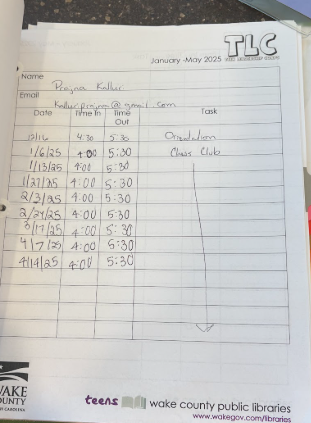 TLC
January -May 2025
Name
Prajna Kallur
Email
kallurprajna@gmail.com
Date Time In Time Out Task
12/16 4:30 5:30 Orientation
1/6/25 4:00 5:30 Chess Club
1/13/25 4:00 5:30
1/27/25 4:00 5:30
2/3/25 4:00 5:30
2/24/25 4:00 5:30
3/17/25 4:00 5:30
4/7/25 4:00 5:30
4/14/25 4:00 5:30
WAKE
COUNTY
teens wake county public libraries
www.wakegov.com/libraries